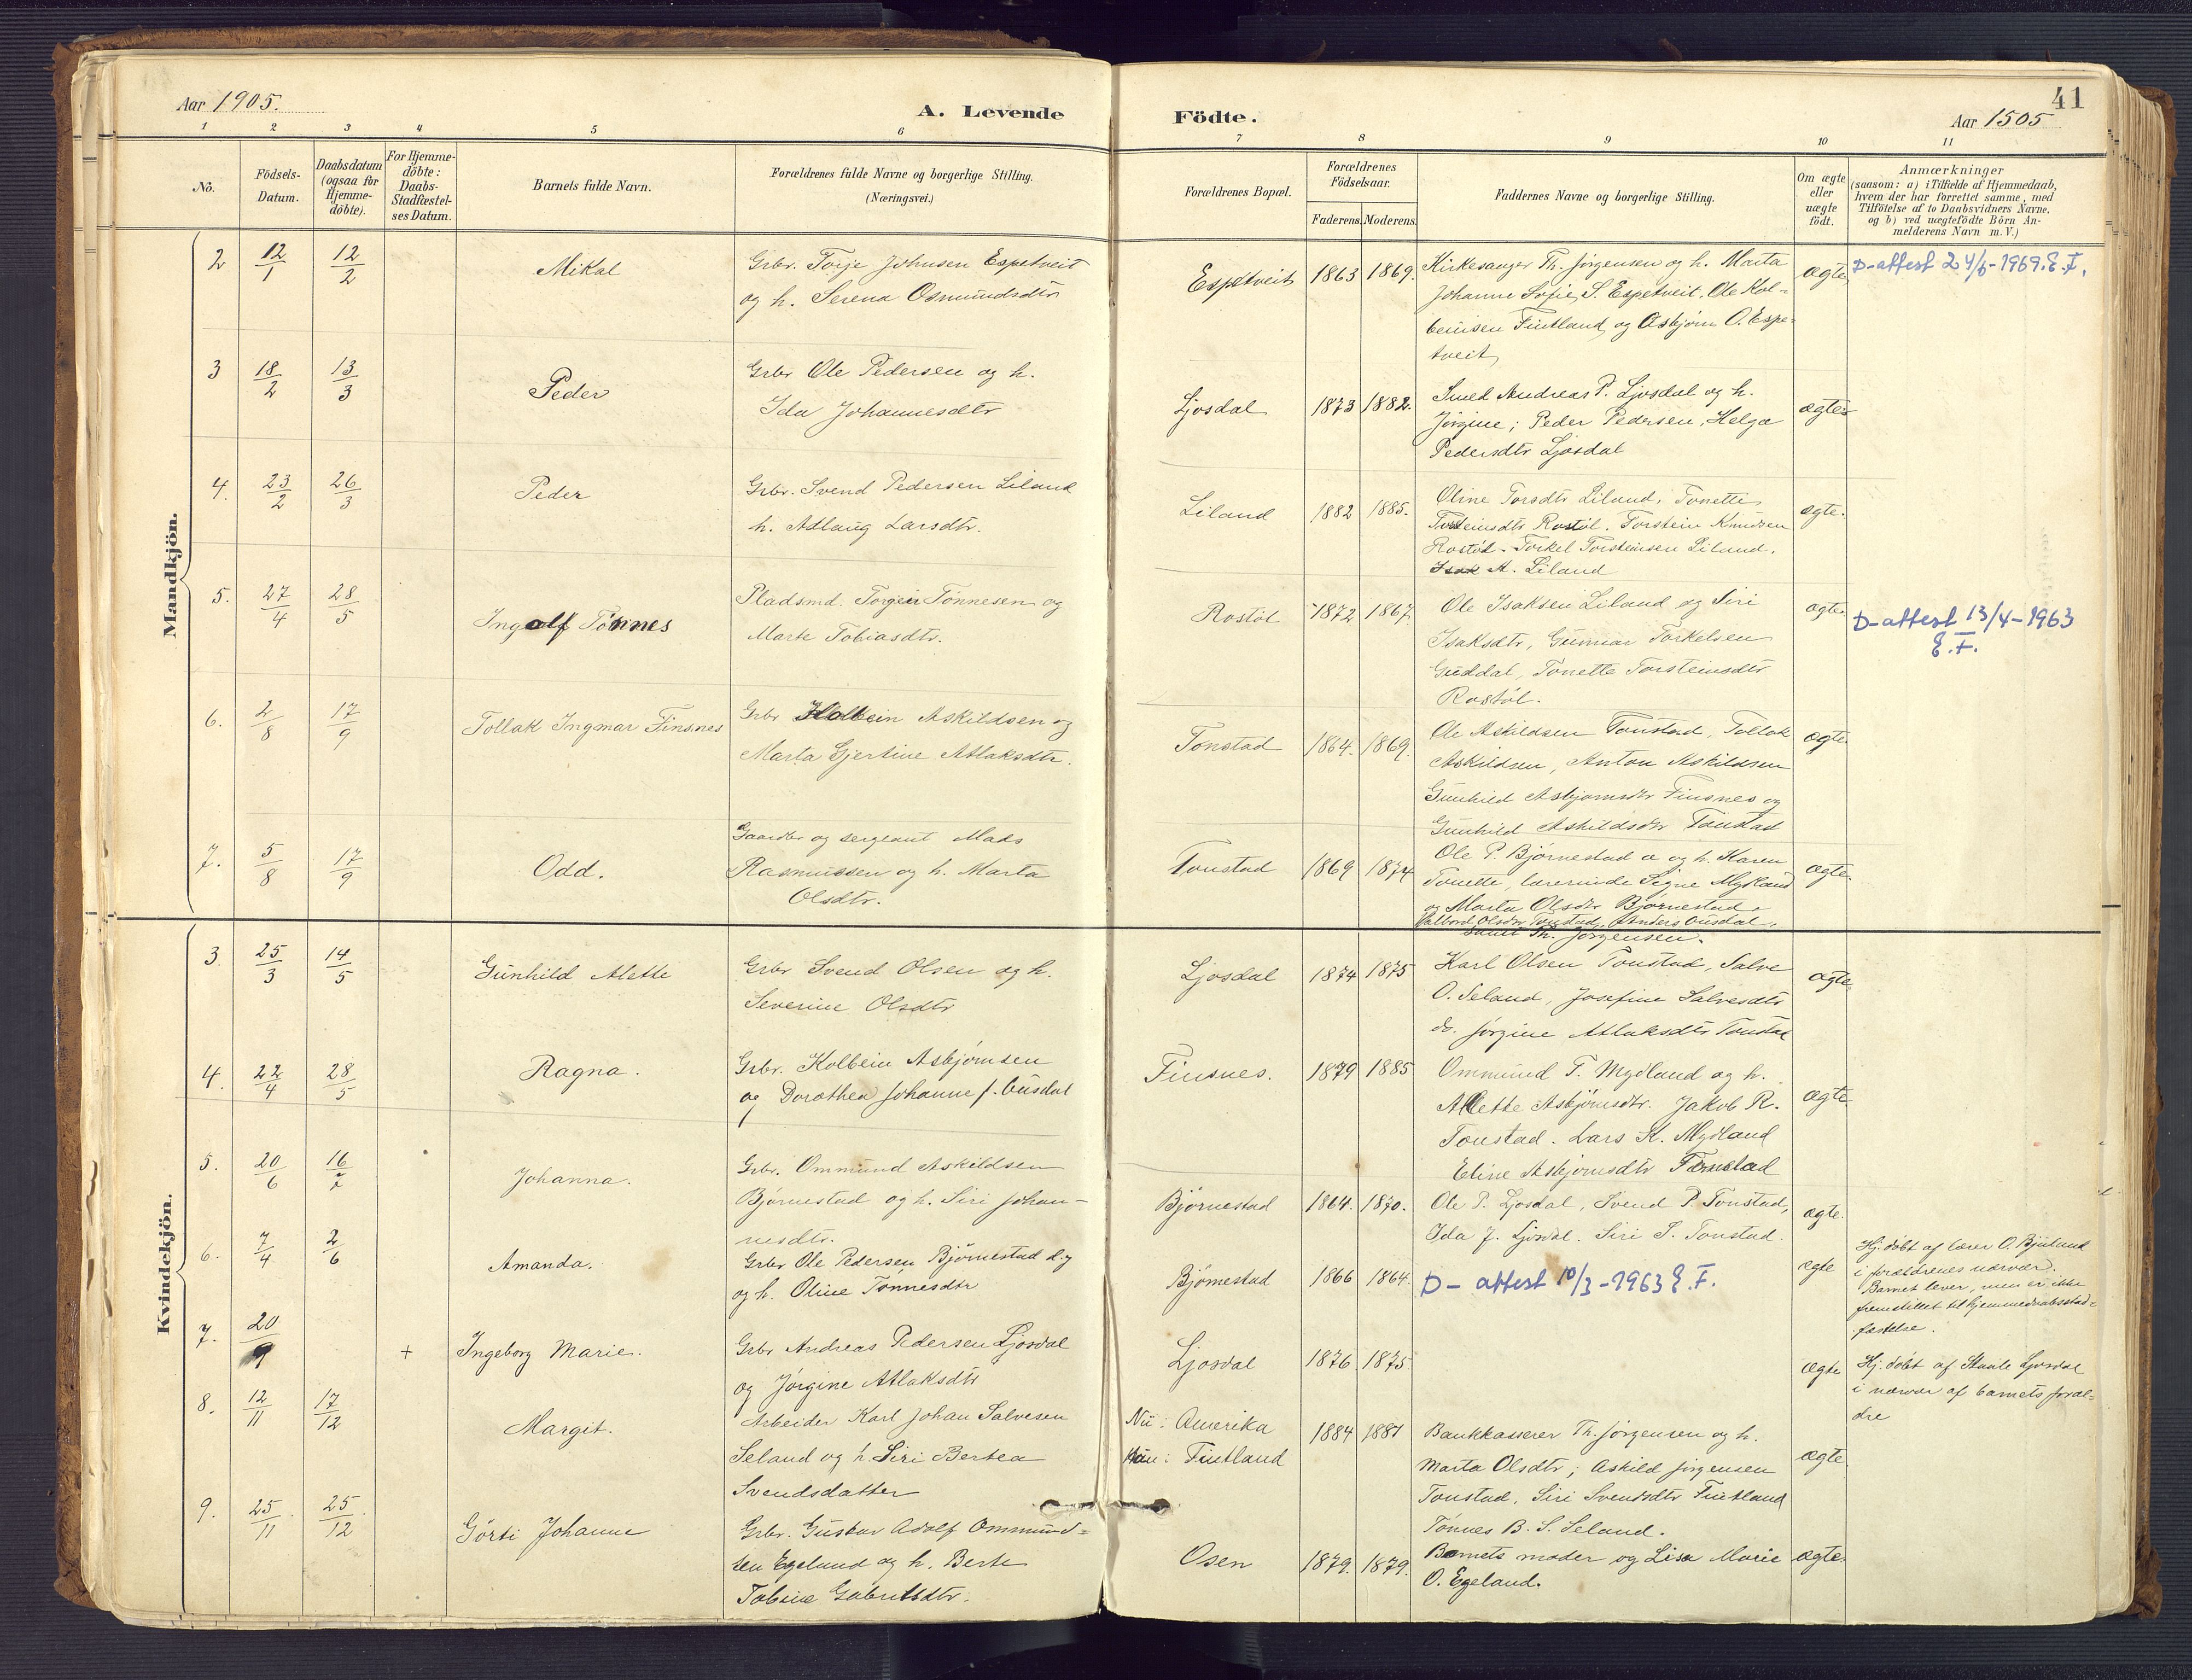 41
Aar 1905.
A. Levende Födte.
Aar 1505
1 2 3 4 5 6 7 8 9 10 11
No.
Födsels-Datum.
Daabsdatum (ogsaa for Hjemme-döbte).
For Hjemme-döbte: Daabs-Stadfæstel-ses Datum.
Barnets fulde Navn.
Forældrenes fulde Navne og borgerlige Stilling.
(Næringsvei.)
Forældrenes Bopæl.
Forældrenes Födselsaar.
Faderens. Moderens.
Faddernes Navne og borgerlige Stilling.
Om ægte eller uægte födt.
Anmærkninger
(saasom: a) i Tilfælde af Hjemmedaab,
hvem der har forrettet samme, med
Tilföielse af to Daabsvidners Navne,
og b) ved uægtefödte Börn An-
melderens Navn m. V.)
Mandkjön.
2 12/1 12/2 Mikal
Grbr. Torje Johnsen Espetveit
og h. Serena Osmundsdtr
Espetveit 1863 1869.
Kirkesanger Th. Jørgensen og h. Marta
Johanne Sofie S. Espetveit, Ole Kol-
beinsen Fintland og Asbjørn O. Espe-
tveit
ægte
D-attest 24/6-1969. E.F.
3 18/2 13/3 Peder
Grbr Ole Pedersen og h.
Ida Johannesdtr
Ljosdal 1873 1882.
Smed Andreas P. Ljosdal og h.
Jörgine; Peder Pedersen, Helga
Pedersdtr Ljosdal
ægte
4. 23/2 26/3 Peder
Grbr. Svend Pedersen Liland
h. Adlaug Larsdtr.
Liland 1882 1885.
Oline Torsdtr Liland, Tonette
Torsteinsdtr Rostöl. Torstein Knudsen
Rostöl. Torkel Torsteinsen Liland.
Isak A. Liland
ægte.
5. 27/4 28/5 Ingolf Tönnes
Pladsmd. Torgeir Tönnesen og
Marte Tobiasdtr.
Rostöl 1872 1867.
Ole Isaksen Liland og Siri
Isaksdtr, Gunnar Torkelsen
Guddal, Tonette Torsteinsdtr
Rostöl.
ægte
D-attest 13/4-1963
E.F.
6. 2/8 17/9 Tollak Ingmar Finsnes
Grbr Kolbein Askildsen og
Marta Gjertine Atlaksdtr.
Tonstad 1864. 1869.
Ole Askildsen Tonstad, Tollak
Askildsen, Anton Askildsen
Gunhild Asbjørnsdtr Finsnes og
Gunhild Askildsdtr Tonstad
ægte.
7. 5/8 17/9 Odd.
Gaardbr og sergeant Mads
Rasmussen og h. Marta
Olsdtr.
Tonstad 1869 1874
Ole P. Bjørnestad og h. Karen
Tonette, lærerinde Signe Mydland
og Marta Olsdtr Bjørnestad.
Valborg Olsdtr Tonstad, Anders Ousdal,
samt Th. Jørgensen.
ægte.
Kvindekjön.
3. 25/3 14/5 Gunhild Alette
Grbr Svend Olsen og h.
Severine Olsdtr
Ljosdal 1874 1875
Karl Olsen Tonstad, Salve
O. Seland, Josefine Salvesdtr
ds. Jörgine Atlaksdtr Tonstad
ægte
4. 22/4 28/5 Ragna.
Grbr. Kolbein Asbjørnsen
og Dorothea Johanne f. Ousdal
Finsnes. 1879 1885
Ommund T. Mydland og h.
Alette Asbjørnsdtr. Jakob R.
Tonstad. Lars K. Mydland
Eline Asbjørnsdtr Tonstad
ægte
5. 20/6 16/7 Johanna.
Grbr. Ommund Askildsen
Bjørnestad og h. Siri Johan-
nesdtr.
Bjørnestad 1864. 1870.
Ole P. Ljosdal, Svend P. Tonstad,
Ida J. Ljosdal. Siri S. Tonstad.
ægte.
6. 7/4 2/6 Amanda.
Grbr Ole Pedersen Bjørnestad d.y
og h. Oline Tønnesdtr
Bjørnestad 1866 1864.
D-attest 10/3-1963 E.F.
ægte
Hj. døbt af lærer O. Bjuland
i forældrenes nærvær.
Barnet lever, men er ikke
fremstillet til hjemmedaabsstad-
fæstelse.
7. 20/9 + Ingeborg Marie.
Grbr Andreas Pedersen Ljosdal
og Jørgine Atlaksdtr
Ljosdal 1876 1875
ægte
Hj. döbt af Staale Ljosdal
i nærvær af barnets foræl-
dre
8. 12/11 17/12 Margit.
Arbeider Karl Johan Salvesen
Seland og h. Siri Bertea
Svendsdatter
Nu: Amerika
Hun: Fintland
1884 1881
Bankkasserer Th. Jørgensen og h.
Marta Olsdtr; Askild Jørgensen
Tonstad, Siri Svendsdtr Fintland
Tønnes B. S. Seland.
ægte
9. 25/11. 25/12. Görti Johanne
Grbr. Gustav Adolf Ommund-
sen Egeland og h. Berte
Tobine Gabrielsdtr.
Osen 1879. 1879.
Barnets moder og Lisa Marie
O. Egeland.
ægte.